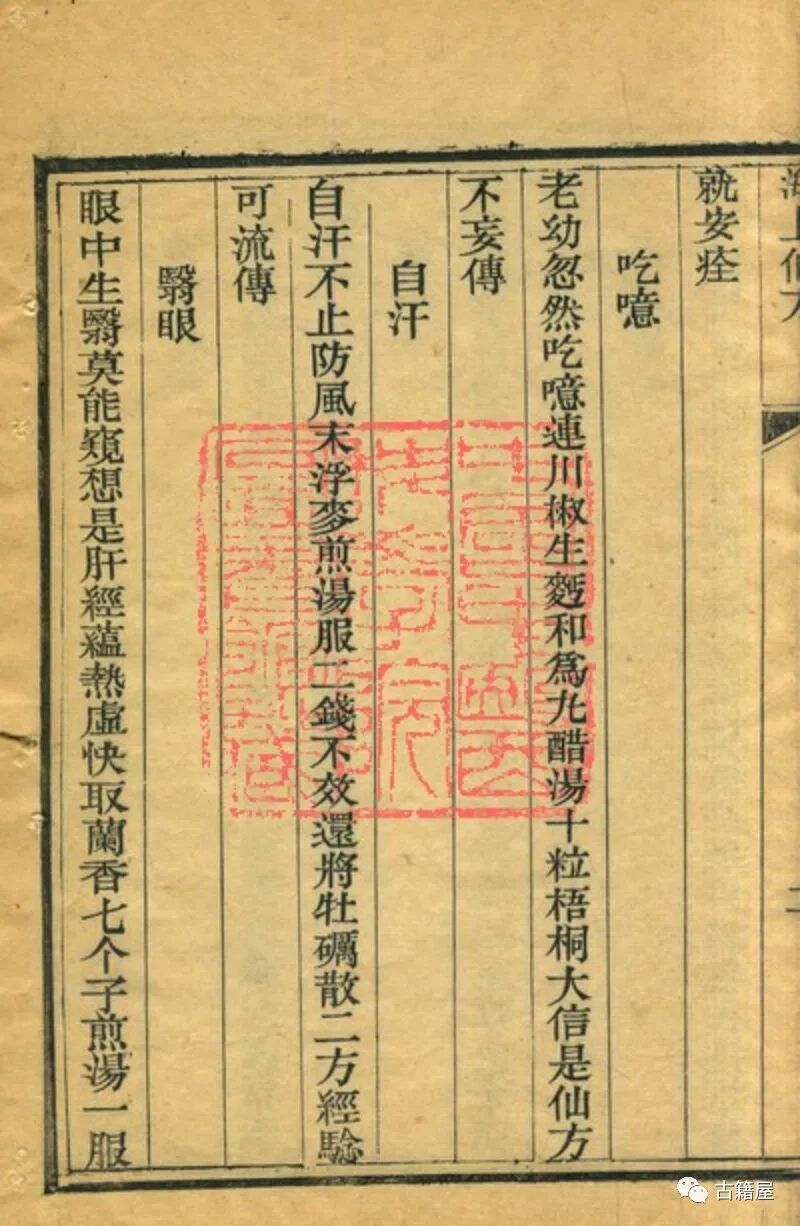 海上仙方
二
就安痊
吃噫
老幼忽然吃噫連川椒生麪和爲丸醋湯十粒梧桐大信是仙方
不妄傳
自汗
自汗不止防風末浮麥煎湯服二錢不效還將牡礪散二方經驗
可流傳
翳眼
眼中生翳莫能窺想是肝經蘊熱虛快取蘭香七个子煎湯一服
古籍屋